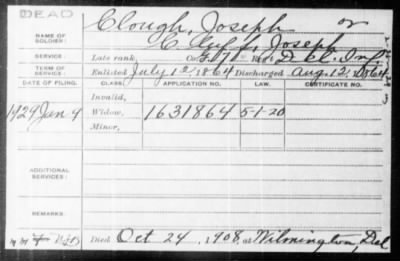 DEAD
Clough, Joseph or
NAME OF SOLDIER: Cluff, Joseph
SERVICE: Late rank, Co. Reg't Del. Inf.
TERM OF SERVICE: Enlisted July 12 1864 Discharged Aug. 12, 1864
DATE OF FILING. CLASS. APPLICATION NO. LAW. CERTIFICATE NO.
Invalid,
1929 Jan 9 Widow, 1631864 5-1-20
Minor,
ADDITIONAL SERVICES:
REMARKS:
Died Oct 24, 1908, at Wilmington, Del